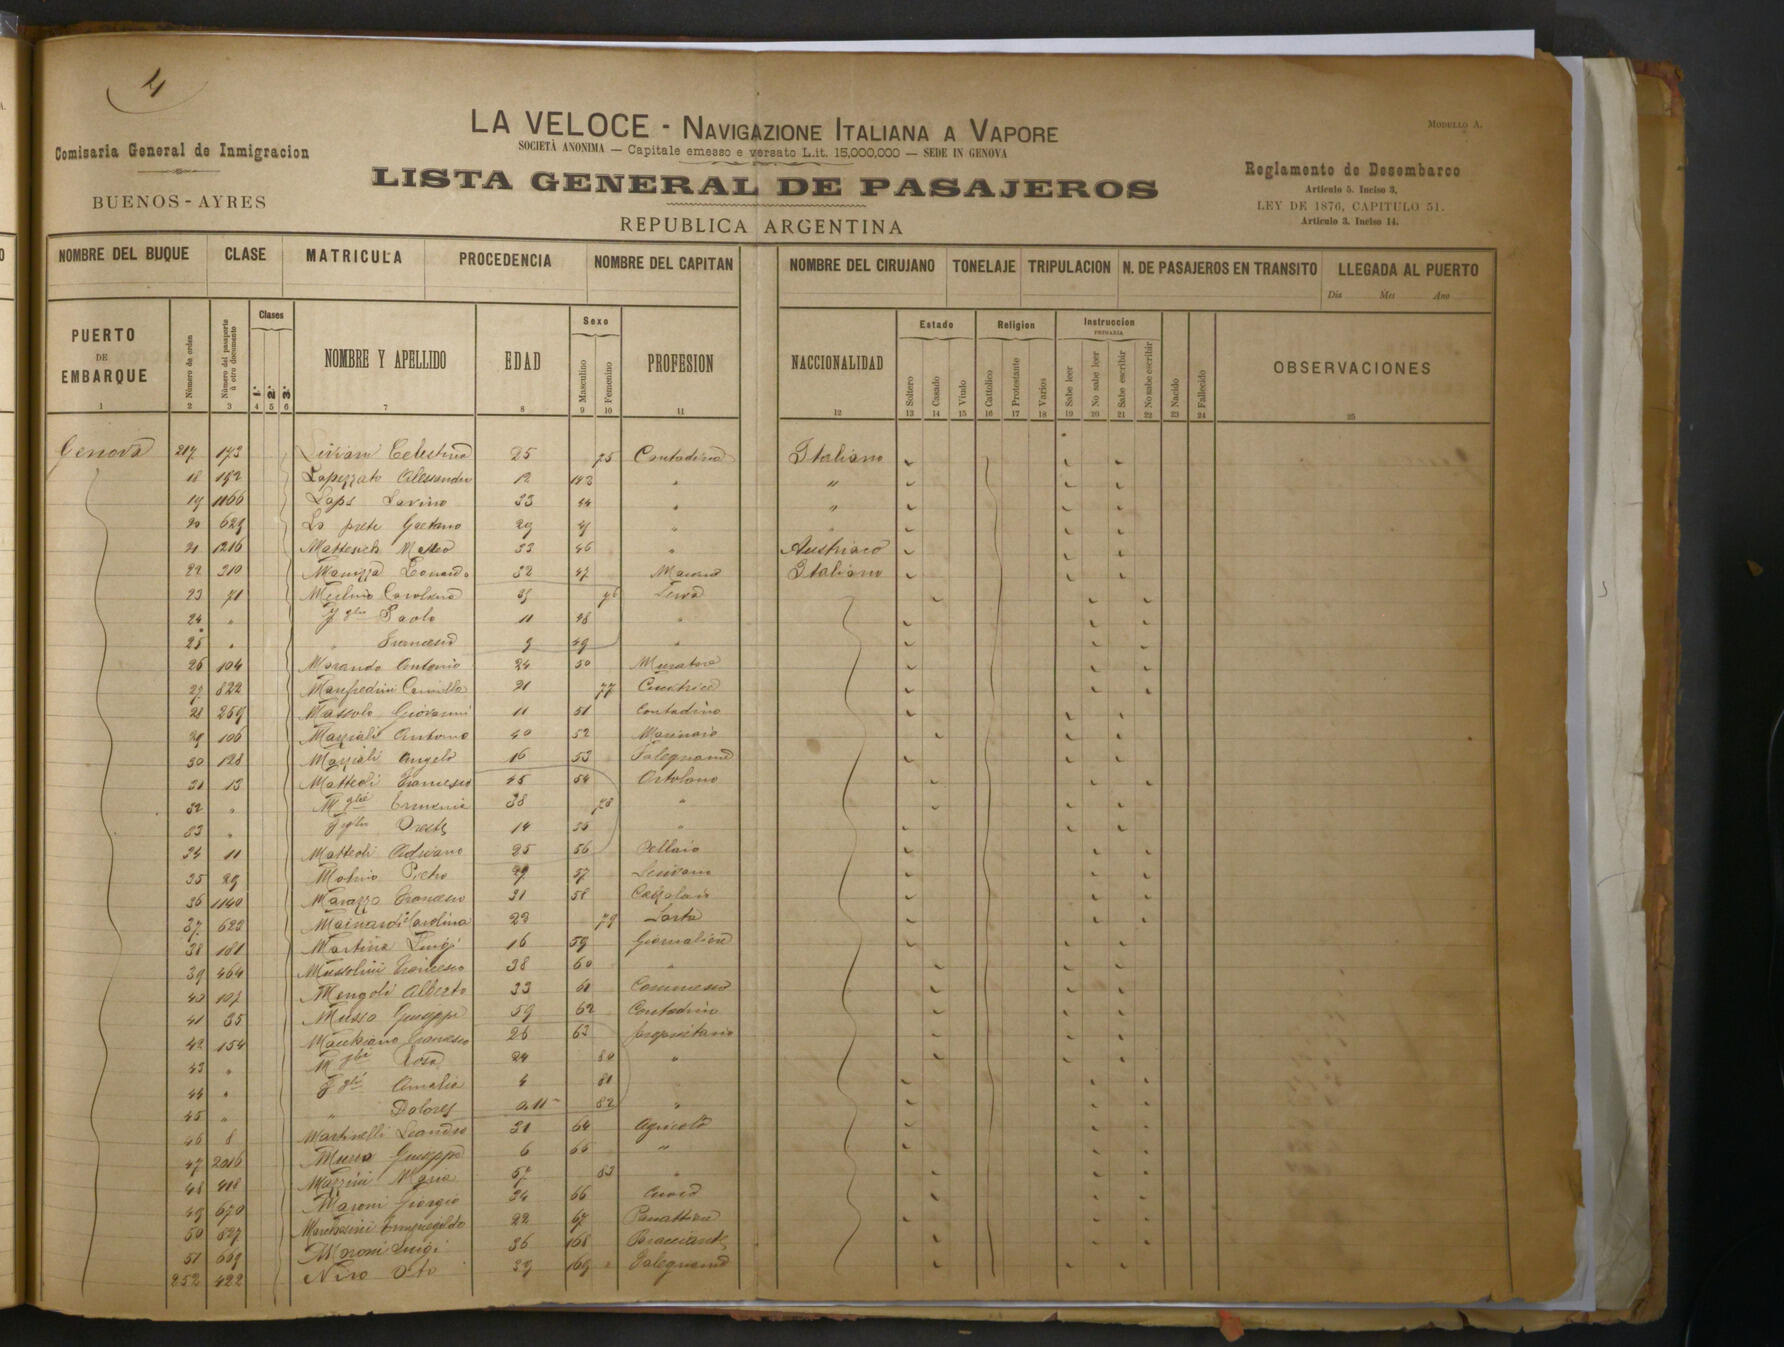 4
LA VELOCE - NAVIGAZIONE ITALIANA A VAPORE
MODULLO A.
Comisaria General de Inmigracion
SOCIETÀ ANONIMA — Capitale emesso e versato L.it. 15,000,000 — SEDE IN GENOVA
Reglamento de Desembarco
LISTA GENERAL DE PASAJEROS
Articulo 5. Inciso 3.
BUENOS-AYRES
LEY DE 1876, CAPITULO 51.
REPUBLICA ARGENTINA
Articulo 3. Inciso 14.
NOMBRE DEL BUQUE CLASE MATRICULA PROCEDENCIA NOMBRE DEL CAPITAN NOMBRE DEL CIRUJANO TONELAJE TRIPULACION N. DE PASAJEROS EN TRANSITO LLEGADA AL PUERTO
Dia Mes Ano
PUERTO DE EMBARQUE Número de orden Número del pasaporte ú otro documento Clases 1.ª 2.ª 3.ª NOMBRE Y APELLIDO EDAD Sexo Masculino Femenino PROFESION NACCIONALIDAD Estado Soltero Casado Viudo Religion Cattolico Protestante Varios Instruccion PRIMARIA Sabe leer No sabe leer Sabe escribir No sabe escribir Nacido Fallecido OBSERVACIONES
1 2 3 4 5 6 7 8 9 10 11 12 13 14 15 16 17 18 19 20 21 22 23 24 25
Genova 217 173 Celestina 25 75 Contadina Italiano
18 192 Alessandro 12 143 " "
19 1166 Savino 33 44 " "
20 629 Lo prete Gaetano 29 45 " "
21 1216 Matteo 33 46 " Austriaco
22 310 Leonardo 32 47 Italiano
23 71 Carolina 35 76
24 " Paolo 11 48 "
25 " " Francesco 9 49 "
26 104 Morando Antonio 24 50 Muratore
27 822 Manfredini Camilla 21 77 Cucitrice
28 259 Massolo Giovanni 11 51 Contadino
29 106 Marziali Antonio 40 52 Marinaio
30 128 Marziali Angelo 16 53 Falegname
31 13 Matteoli Francesco 45 54 Ortolano
32 " M glie Erminia 38 78 "
33 " F glio Oreste 14 55 "
34 11 Matteoli Adriano 25 56 Pellaio
35 29 Molino Pietro 57
36 1140 Marazzo Francesco 31 58
37 623 Mainardi Carolina 23 79 Sarta
38 181 Martina Luigi 16 59 Giornaliere
39 464 Mussolini Francesco 38 60 "
40 107 Mengoli Alberto 33 61 Commesso
41 35 Musso Giuseppe 59 62 Contadino
42 154 Francesco 26 63 proprietario
43 " M glie Rosa 24 80 "
44 " F gli Amalia 4 81
45 " " Dolores 0.11 82 "
46 8 Martinelli Leandro 31 64 Agricolt
47 2016 Giuseppe 6 65 "
48 418 Mazzini Maria 57 83 "
49 670 Maroni Giorgio 34 66
50 827 22 67 Panattiere
51 669 Maroni Luigi 36 168 Bracciante
252 422 Niro Vito 39 169 Falegname